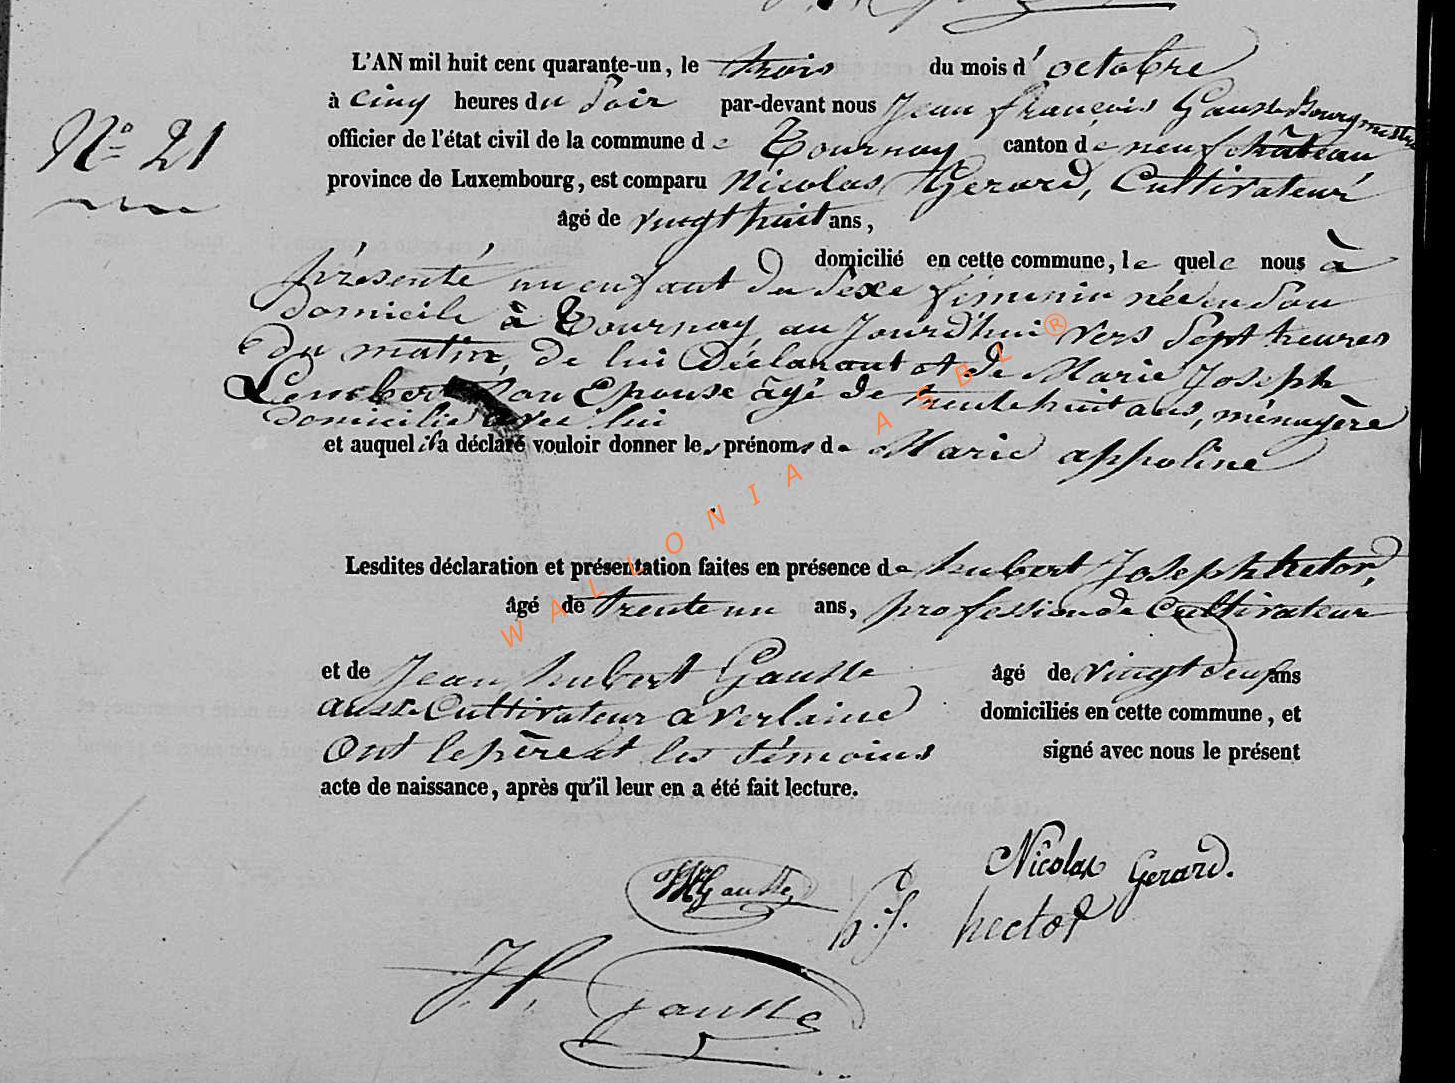 L'AN mil huit cent quarante-un, le trois du mois d'octobre
à cinq heures du Soir par-devant nous Jean françois Gausse Bourgmestre
officier de l'état civil de la commune de Tournay canton de neufchâteau
N° 21
province de Luxembourg, est comparu Nicolas Gerard, Cultivateur
âgé de vingt huit ans,
domicilié en cette commune, le quel nous à
présenté un enfant du Sexe féminin née en Son
domicile à Tournay, au Jourd'hui vers Sept heures
du matin, de lui Déclarant et de Marie Joseph
Lembert Son Epouse âgé de trente huit ans, ménagère
domicilié avec lui
et auquel il a déclaré vouloir donner les prénoms de Marie appoline
Lesdites déclaration et présentation faites en présence de hubert Joseph hector,
âgé de trente un ans, profession de Cultivateur
et de Jean hubert Gausse âgé de vingt neuf ans
aussi Cultivateur a Verlaine domiciliés en cette commune, et
Ont le père et les témoins signé avec nous le présent
acte de naissance, après qu'il leur en a été fait lecture.
Nicolas Gerard.
Gausse
h. J. hector
J. f. Gausse
WALLONIA ASBL ®